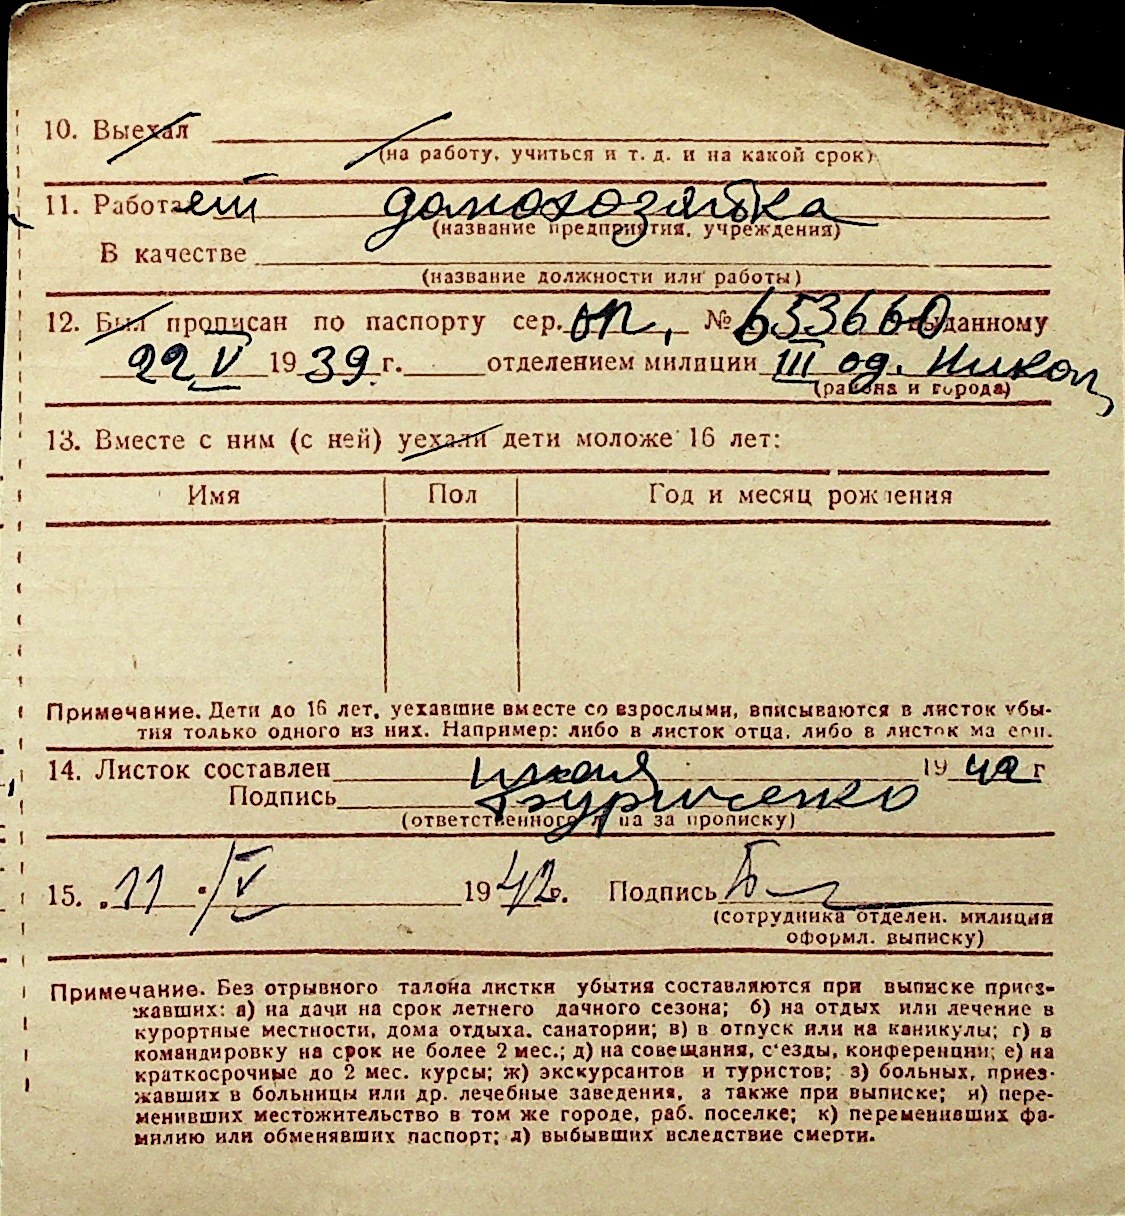 10. Выехал
(на работу, учиться и т. д. и на какой срок)
11. Работает домохозяйка
(название предприятия, учреждения)
В качестве
(название должности или работы)
12. Был прописан по паспорту сер. № 653660 выданному
22 V 1939 г. отделением милиции III од. Никол
(района и города)
13. Вместе с ним (с ней) уехали дети моложе 16 лет:
Имя Пол Год и месяц рождения
Примечание. Дети до 16 лет, уехавшие вместе со взрослыми, вписываются в листок убы-
тия только одного из них. Например: либо в листок отца, либо в листок матери.
14. Листок составлен 1942 г
Подпись
(ответственного лица за прописку)
15. 11/V 1942 г. Подпись
(сотрудника отделен. милиции
оформл. выписку)
Примечание. Без отрывного талона листки убытия составляются при выписке приез-
жавших: а) на дачи на срок летнего дачного сезона; б) на отдых или лечение в
курортные местности, дома отдыха, санатории; в) в отпуск или на каникулы; г) в
командировку на срок не более 2 мес.; д) на совещания, с'езды, конференции; е) на
краткосрочные до 2 мес. курсы; ж) экскурсантов и туристов; з) больных, приез-
жавших в больницы или др. лечебные заведения, а также при выписке; и) пере-
менивших местожительство в том же городе, раб. поселке; к) переменивших фа-
милию или обменявших паспорт; л) выбывших вследствие смерти.